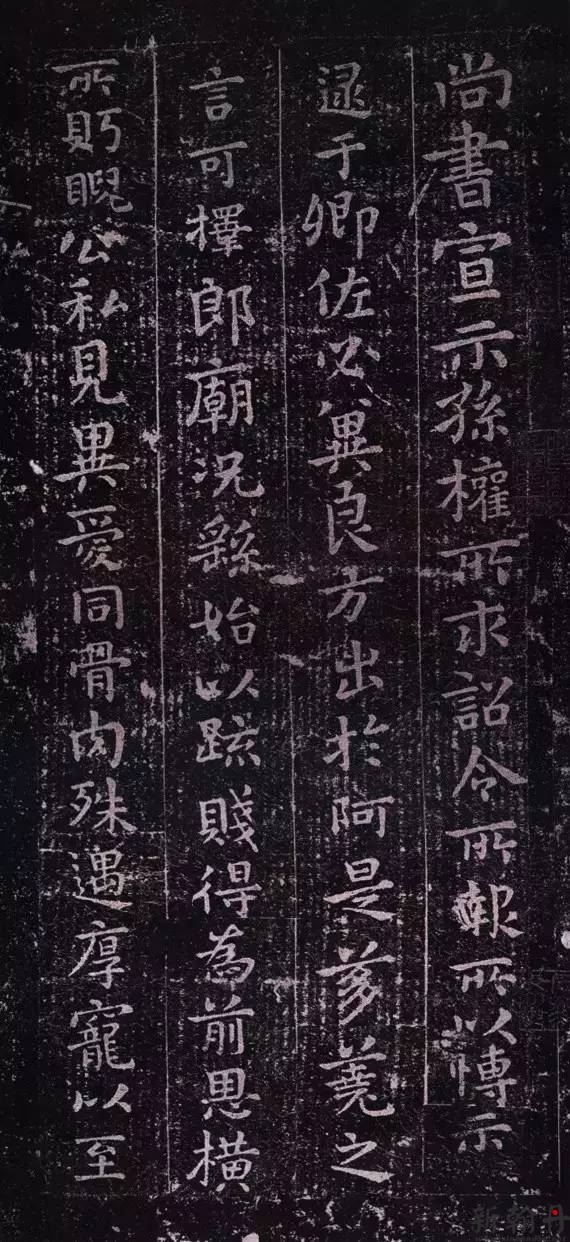 尚書宣示孫權所求詔令所報所以愽示
逮于卿佐必冀良方出於阿是芻蕘之
言可擇郎廟況繇始以疏賤得為前恩橫
所眄睨公私見異愛同骨肉殊遇厚寵以至
新翰丹